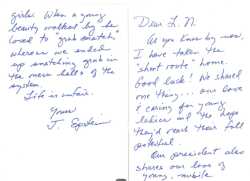 Dear L. N.
As you know by now,
I have taken the
"short route" home.
Good luck! We shared
one thing... our love
& caring for young
ladies and the hope
they'd reach their full
potential.
Our president also
shares our love of
young, nubile
girls. When a young
beauty walked by he
loved to "grab snatch"
whereas we ended
up snatching grub in
the mess halls of the
system.
Life is unfair.
Yours
J. Epstein